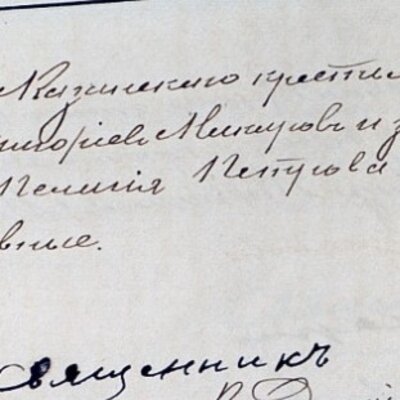 Казинскаго крестья
игорiевъ Макаровъ и з
Пелагiя Петрова
вные.
Священникъ